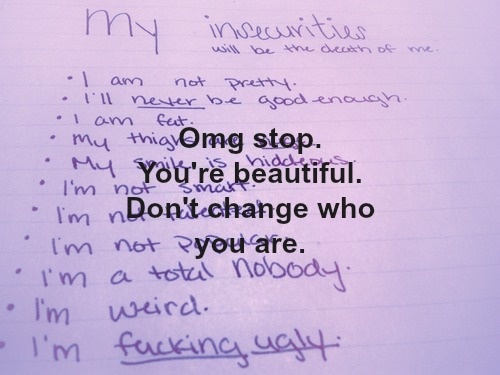 My insecurities
will be the death of me.
• I am not pretty.
• I'll never be good enough.
• I am fat.
• My thighs are
Omg stop.
• My smile is hiddeous.
You're beautiful.
• I'm not smart.
• I'm not talented.
Don't change who
• I'm not popular.
you are.
• I'm a total nobody.
• I'm weird.
• I'm fucking ugly.